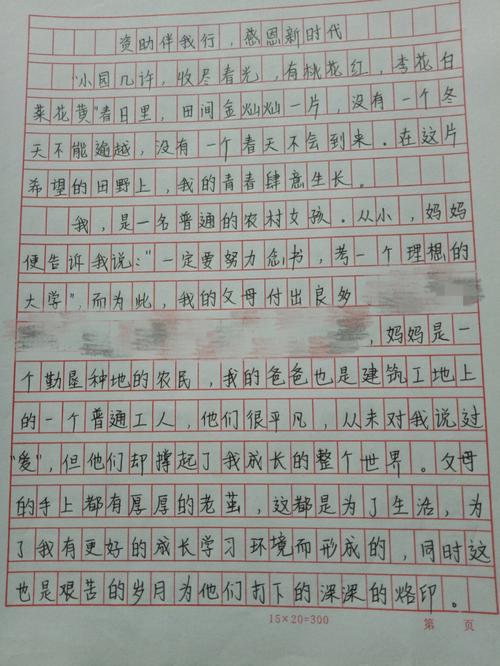 资助伴我行，感恩新时代
“小园几许，收尽春光，有桃花红，李花白
菜花黄”春日里，田间金灿灿一片，没有一个冬
天不能逾越，没有一个春天不会到来．在这片
希望的田野上，我的青春肆意生长。
我，是一名普通的农村女孩．从小，妈妈
便告诉我说：“一定要努力念书，考一个理想的
大学”，而为此，我的父母付出良多
，妈妈是一
个勤垦种地的农民，我的爸爸也是建筑工地上
的一个普通工人，他们很平凡，从未对我说过
“爱”，但他们却撑起了我成长的整个世界。父母
的手上都有厚厚的老茧，这都是为了生活，为
了我有更好的成长学习环境而形成的，同时这
也是艰苦的岁月为他们打下的深深的烙印。
15×20=300 第 页